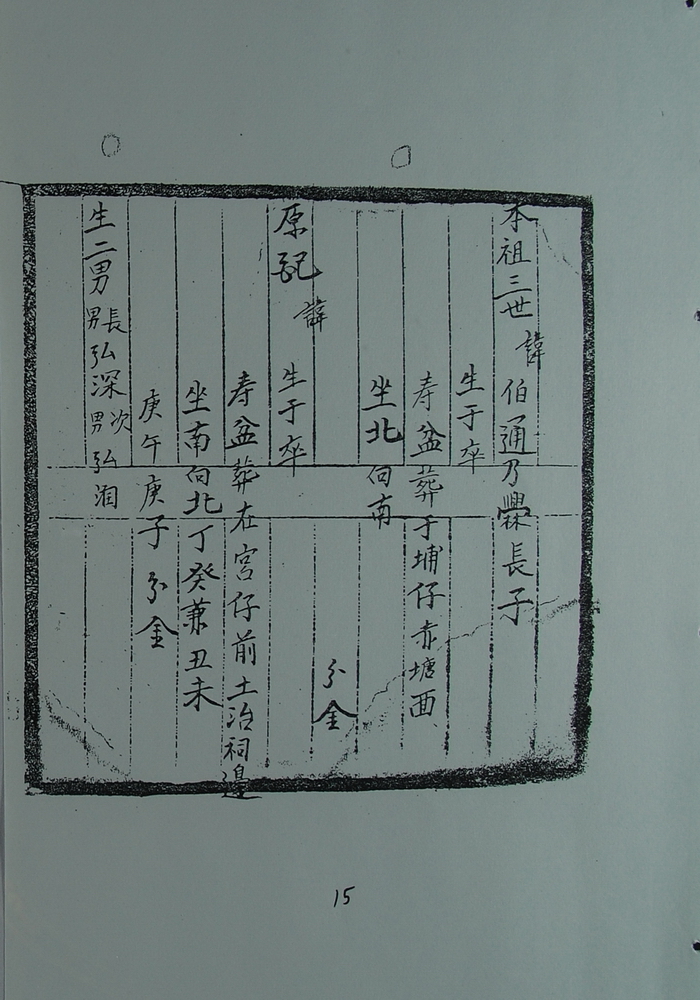 本祖三世 諱 伯通乃長子
生于 卒
寿盆葬于埔仔赤塘面
坐北向南
分金
諱
原配 生于 卒
寿盆葬在宫仔前土治祠邉
坐南向北丁癸兼丑未
庚午庚子分金
生二男 長男弘深 次男弘
15